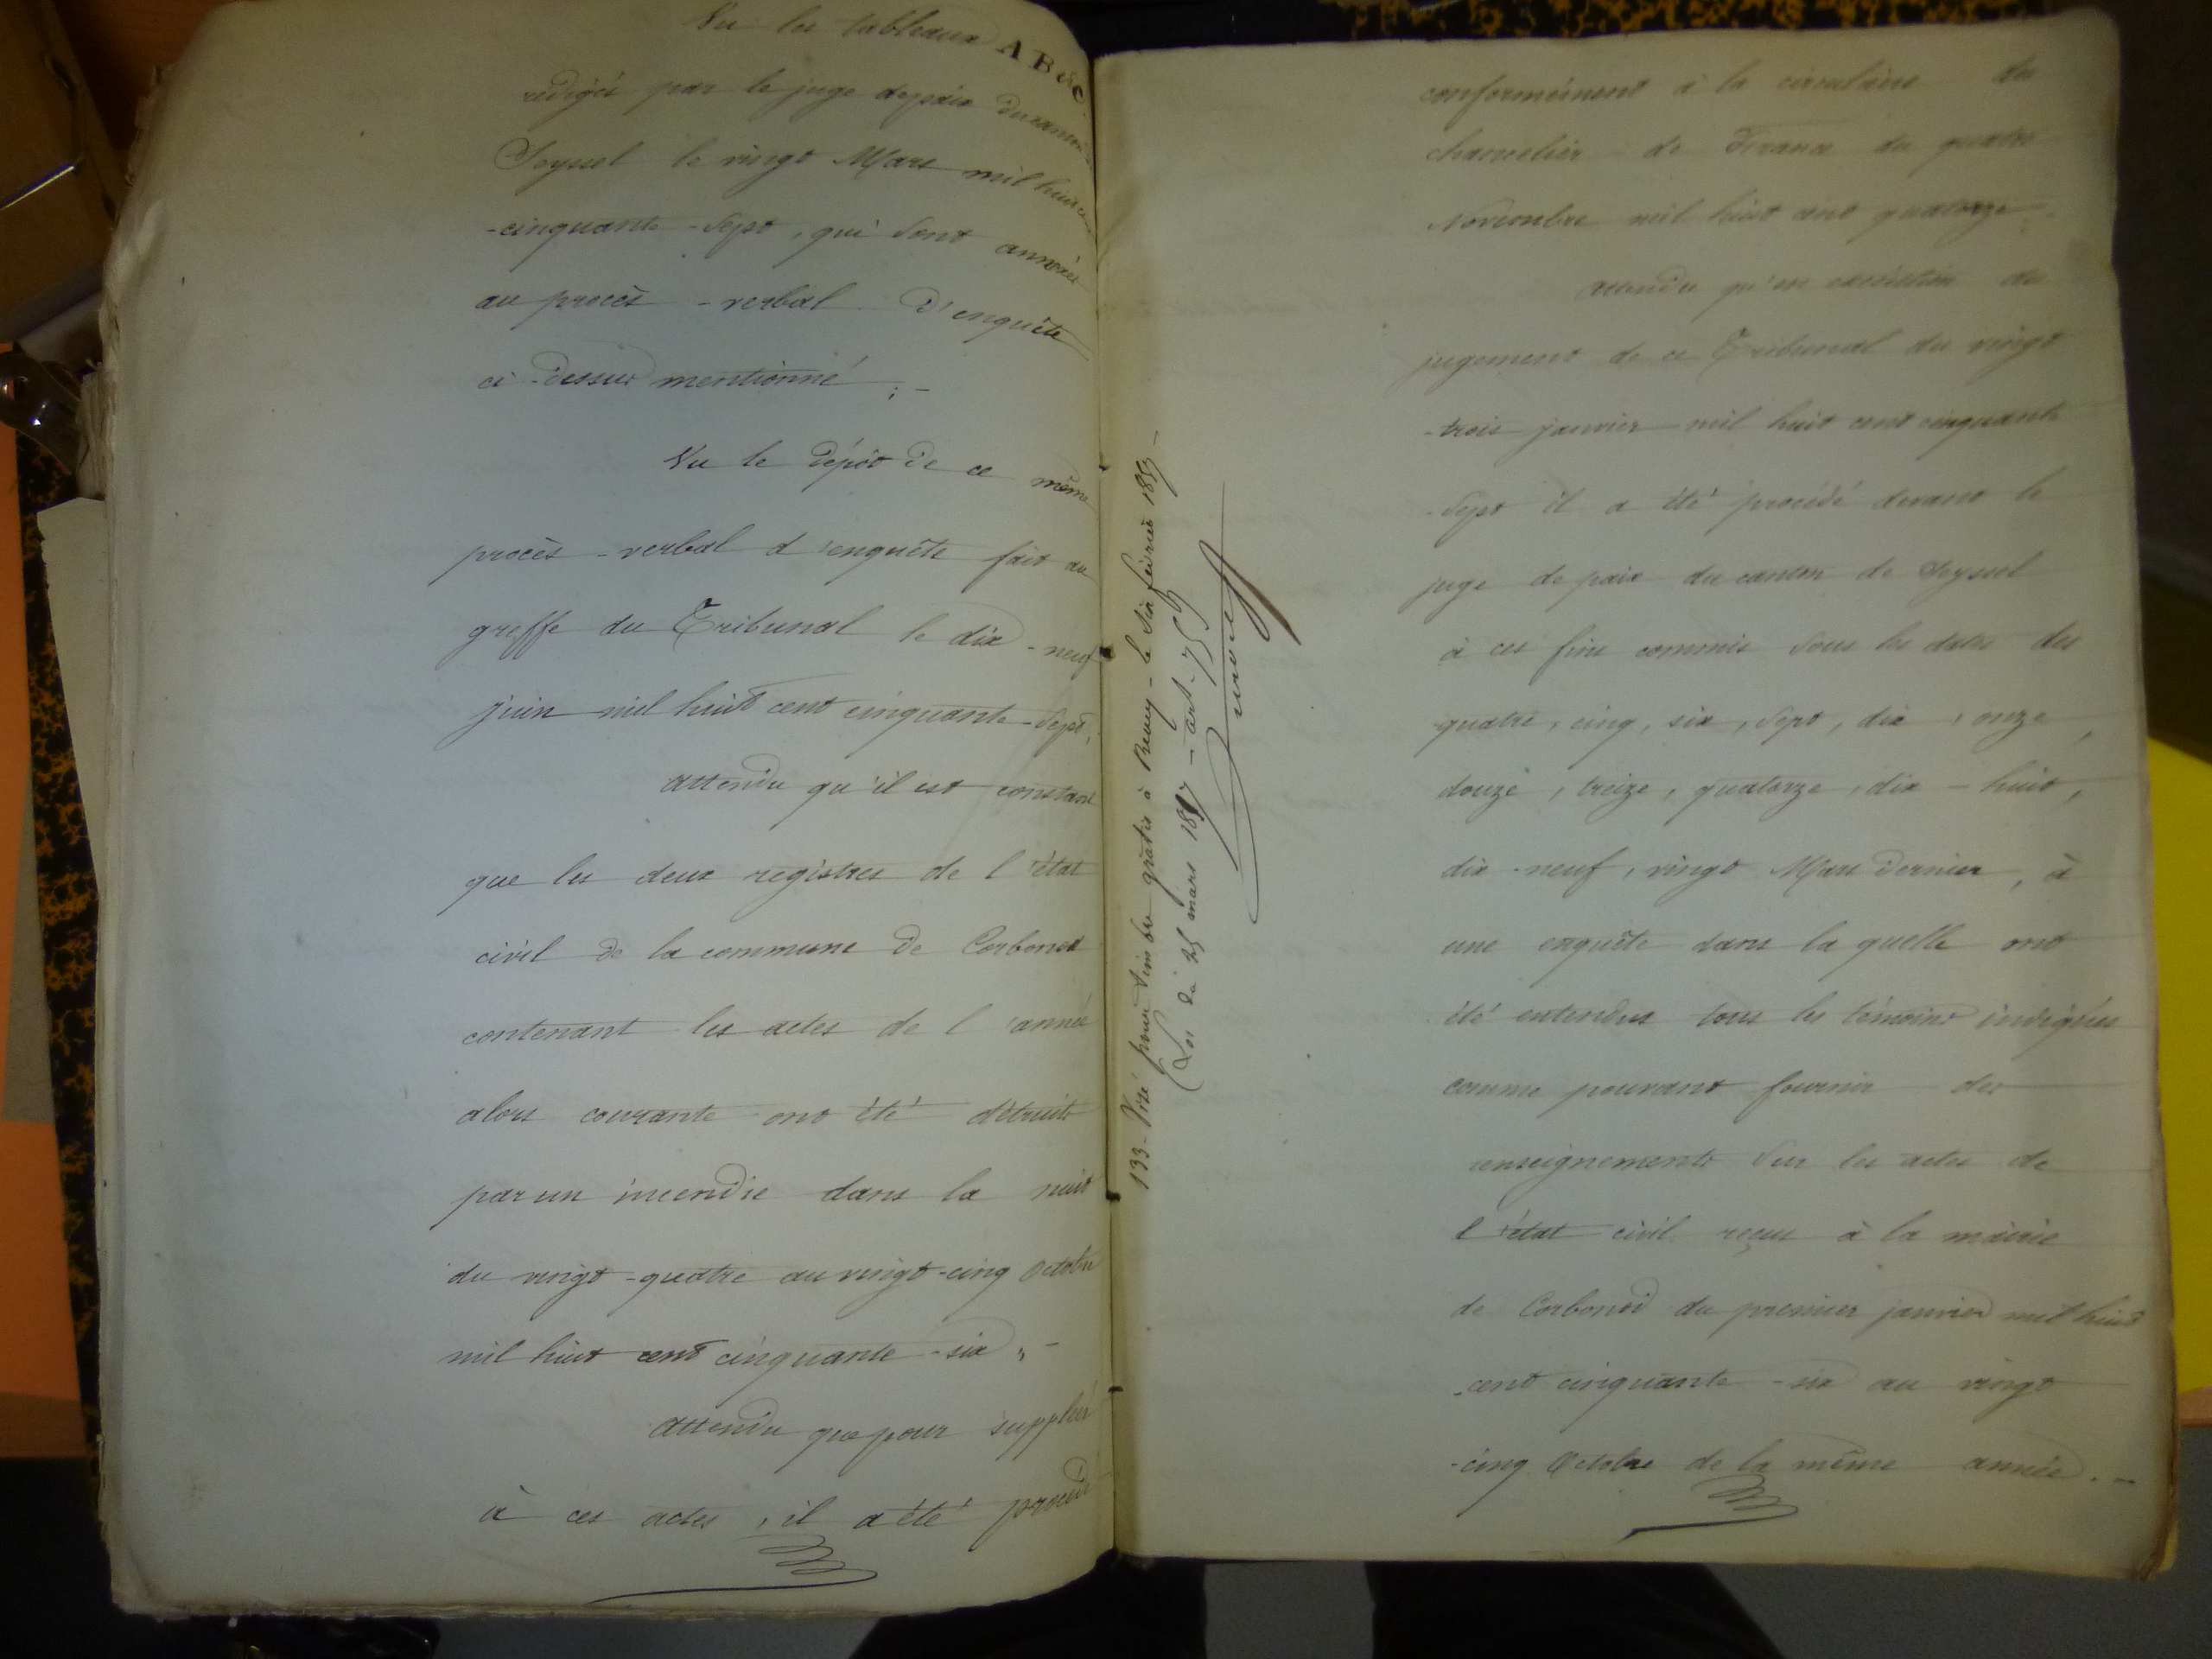 Vu les tableaux A B & C
rédigés par le juge de paix du canton
Seyssel le vingt Mars mil huit cent
-cinquante-sept, qui sont annexés
au procès-verbal d'enquête
ci-dessus mentionné ;-
Vu le dépôt de ce même
procès-verbal d'enquête fait au
greffe du Tribunal le dix-neuf
juin mil huit cent cinquante-sept,
attendu qu'il est constant
que les deux registres de l'état
civil de la commune de Corbonod
contenant les actes de l'année
alors courante ont été détruits
par un incendie dans la nuit
du vingt-quatre au vingt-cinq Octobre
mil huit cent cinquante-six ,,-
attendu que pour suppléer
à ces actes, il a été procédé
133 - Visé pour timbre gratis à le six février 1857 -
(Loi du 25 mars 1817 - art. 75)
conformément à la circulaire du
chancelier de France du quatre
Novembre mil huit cent quatorze
attendu qu'en exécution du
jugement de ce Tribunal du vingt
-trois janvier mil huit cent cinquante
-sept il a été procédé devant le
juge de paix du canton de Seyssel
à ces fins commis sous les dates des
quatre, cinq, six, sept, dix, onze,
douze, treize, quatorze, dix-huit,
dix-neuf, vingt Mars dernier, à
une enquête dans la quelle ont
été entendus tous les témoins indiqués
comme pouvant fournir des
renseignements sur les actes de
l'état civil reçus à la mairie
de Corbonod du premier janvier mil huit
-cent cinquante-six au vingt
-cinq Octobre de la même année.-